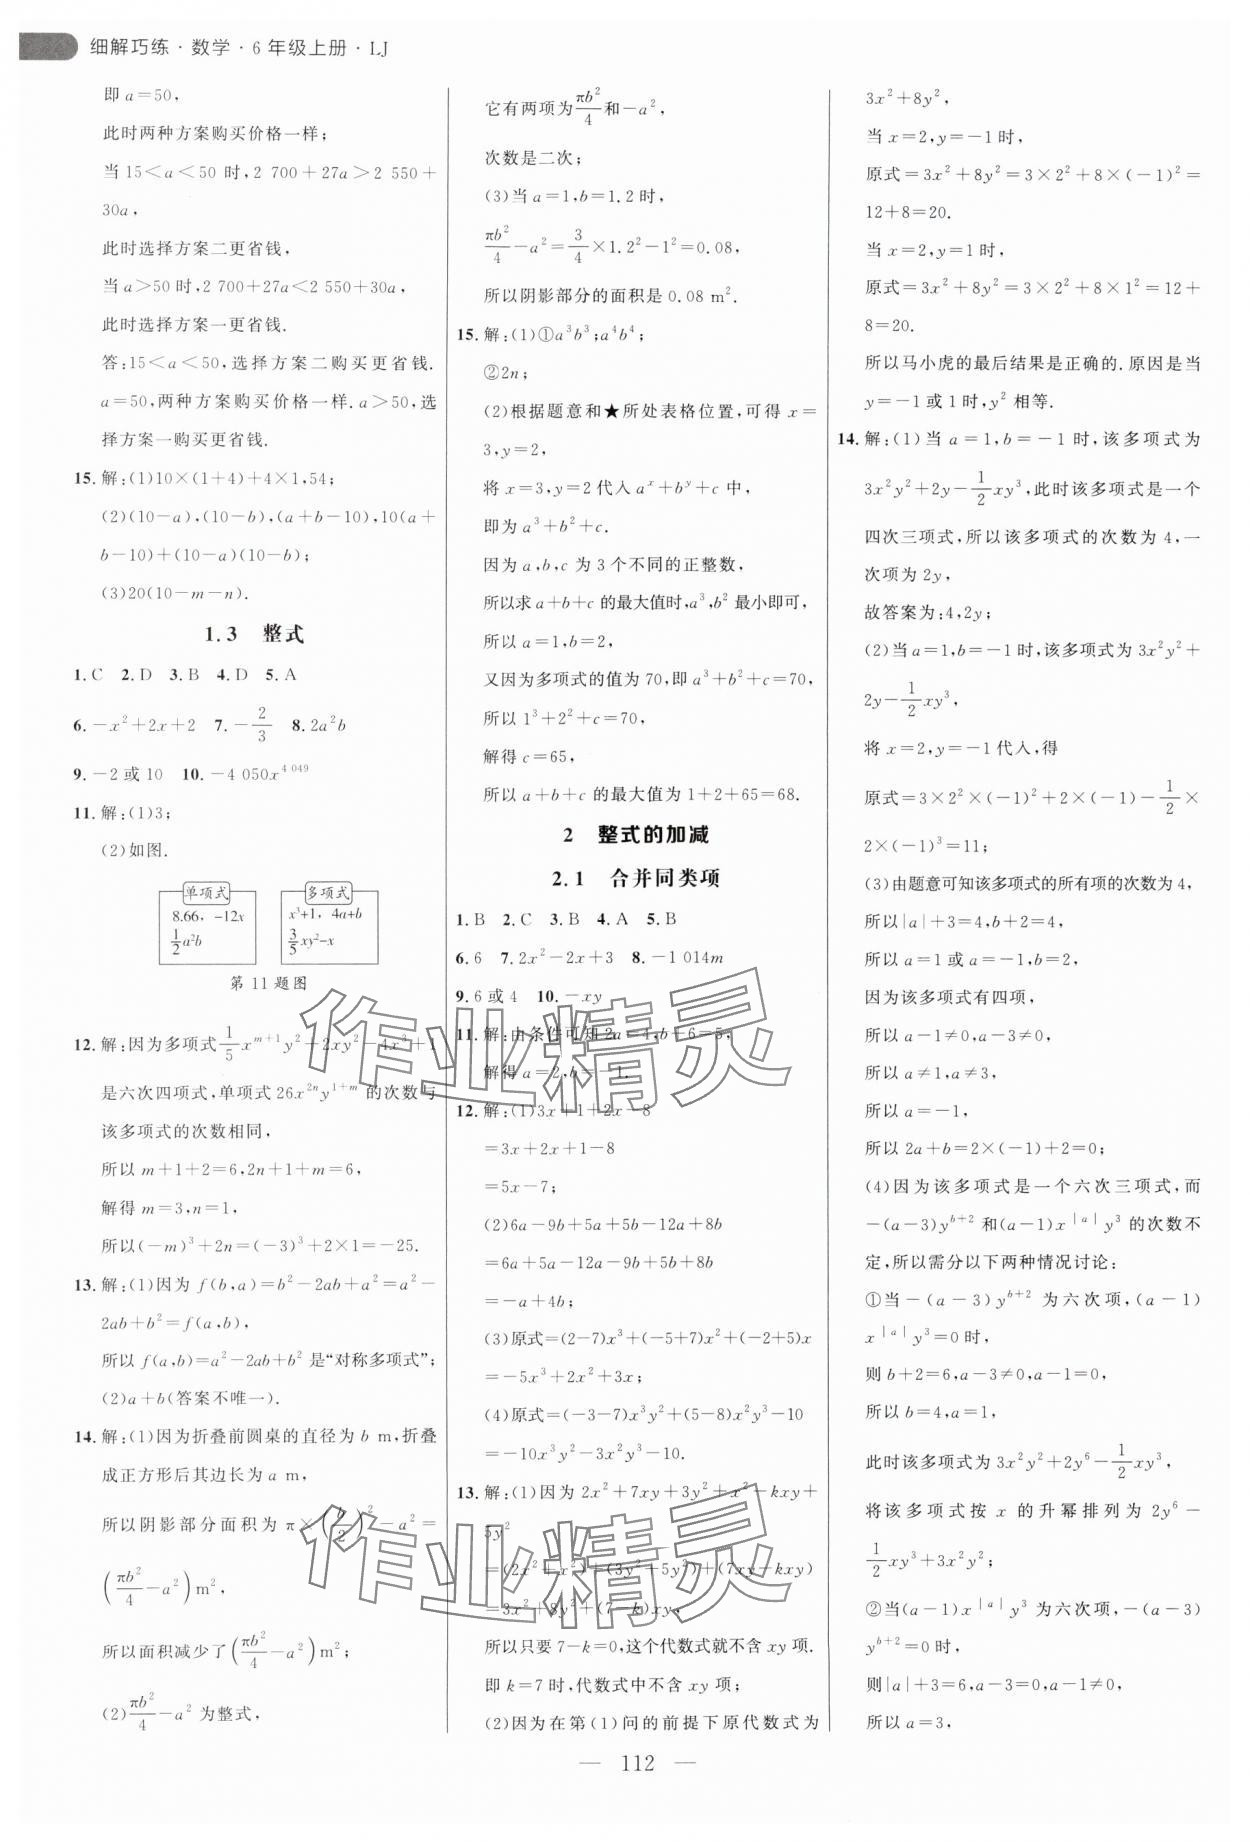 细解巧练·数学·6年级上册·LJ
即a=50，
此时两种方案购买价格一样；
当15<a<50时，2 700+27a>2 550+
30a，
此时选择方案二更省钱，
当a>50时，2 700+27a<2 550+30a，
此时选择方案一更省钱.
答：15<a<50，选择方案二购买更省钱.
a=50，两种方案购买价格一样.a>50，选
择方案一购买更省钱.
15.解：(1)10×(1+4)+4×1，54；
(2)(10-a)，(10-b)，(a+b-10)，10(a+
b-10)+(10-a)(10-b)；
(3)20(10-m-n).
1.3 整式
1.C 2.D 3.B 4.D 5.A
6.-x²+2x+2 7.-2/3 8.2a²b
9.-2或10 10.-4 050x^{4 049}
11.解：(1)3；
(2)如图.
单项式 多项式
8.66，-12x x³+1，4a+b
1/2 a²b 3/5 xy²-x
第11题图
12.解：因为多项式1/5 x^{m+1}y²+2xy²-4x³+1
是六次四项式，单项式26x^{2n}y^{1+m}的次数与
该多项式的次数相同，
所以m+1+2=6，2n+1+m=6，
解得m=3，n=1，
所以(-m)³+2n=(-3)³+2×1=-25.
13.解：(1)因为f(b，a)=b²-2ab+a²=a²-
2ab+b²=f(a，b)，
所以f(a，b)=a²-2ab+b²是“对称多项式”；
(2)a+b(答案不唯一).
14.解：(1)因为折叠前圆桌的直径为b m，折叠
成正方形后其边长为a m，
所以阴影部分面积为π×(b/2)²-a²=
(πb²/4-a²)m²，
所以面积减少了(πb²/4-a²)m²；
(2)πb²/4-a²为整式，
它有两项为πb²/4和-a²，
次数是二次；
(3)当a=1，b=1.2时，
πb²/4-a²=3/4×1.2²-1²=0.08，
所以阴影部分的面积是0.08 m².
15.解：(1)①a³b³；a⁴b⁴；
②2n；
(2)根据题意和★所处表格位置，可得x=
3，y=2，
将x=3，y=2代入a^x+b^y+c中，
即为a³+b²+c.
因为a，b，c为3个不同的正整数，
所以求a+b+c的最大值时，a³，b²最小即可，
所以a=1，b=2，
又因为多项式的值为70，即a³+b²+c=70，
所以1³+2²+c=70，
解得c=65，
所以a+b+c的最大值为1+2+65=68.
2 整式的加减
2.1 合并同类项
1.B 2.C 3.B 4.A 5.B
6.6 7.2x²-2x+3 8.-1 014m
9.6或4 10.-xy
11.解：由条件可知2a=4，b+6=5，
解得a=2，b=-1.
12.解：(1)3x+1+2x-8
=3x+2x+1-8
=5x-7；
(2)6a-9b+5a+5b-12a+8b
=6a+5a-12a-9b+5b+8b
=-a+4b；
(3)原式=(2-7)x³+(-5+7)x²+(-2+5)x
=-5x³+2x²+3x；
(4)原式=(-3-7)x³y²+(5-8)x²y³-10
=-10x³y²-3x²y³-10.
13.解：(1)因为2x²+7xy+3y²+x²-kxy+
5y²
=(2x²+x²)+(3y²+5y²)+(7xy-kxy)
=3x²+8y²+(7-k)xy，
所以只要7-k=0，这个代数式就不含xy项.
即k=7时，代数式中不含xy项；
(2)因为在第(1)问的前提下原代数式为
3x²+8y²，
当x=2，y=-1时，
原式=3x²+8y²=3×2²+8×(-1)²=
12+8=20.
当x=2，y=1时，
原式=3x²+8y²=3×2²+8×1²=12+
8=20.
所以马小虎的最后结果是正确的.原因是当
y=-1或1时，y²相等.
14.解：(1)当a=1，b=-1时，该多项式为
3x²y²+2y-1/2 xy³，此时该多项式是一个
四次三项式，所以该多项式的次数为4，一
次项为2y，
故答案为：4，2y；
(2)当a=1，b=-1时，该多项式为3x²y²+
2y-1/2 xy³，
将x=2，y=-1代入，得
原式=3×2²×(-1)²+2×(-1)-1/2×
2×(-1)³=11；
(3)由题意可知该多项式的所有项的次数为4，
所以|a|+3=4，b+2=4，
所以a=1或a=-1，b=2，
因为该多项式有四项，
所以a-1≠0，a-3≠0，
所以a≠1，a≠3，
所以a=-1，
所以2a+b=2×(-1)+2=0；
(4)因为该多项式是一个六次三项式，而
-(a-3)y^{b+2}和(a-1)x^{|a|}y³的次数不
定，所以需分以下两种情况讨论：
①当-(a-3)y^{b+2}为六次项，(a-1)
x^{|a|}y³=0时，
则b+2=6，a-3≠0，a-1=0，
所以b=4，a=1，
此时该多项式为3x²y²+2y⁶-1/2 xy³，
将该多项式按x的升幂排列为2y⁶-
1/2 xy³+3x²y²；
②当(a-1)x^{|a|}y³为六次项，-(a-3)
y^{b+2}=0时，
则|a|+3=6，a-3=0，a-1≠0，
所以a=3，
— 112 —
作业精灵
作业精灵